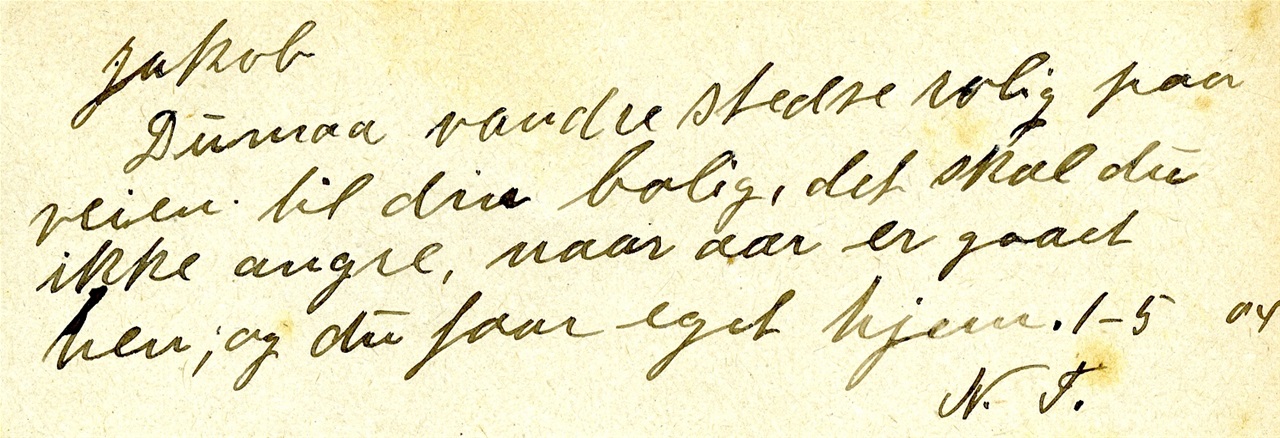 Jakob
Du maa vandre stedse rolig paa
veien til din bolig, det skal du
ikke angre, naar aar er gaaet
hen, og du faar eget hjem. 1-5 04
N. T.